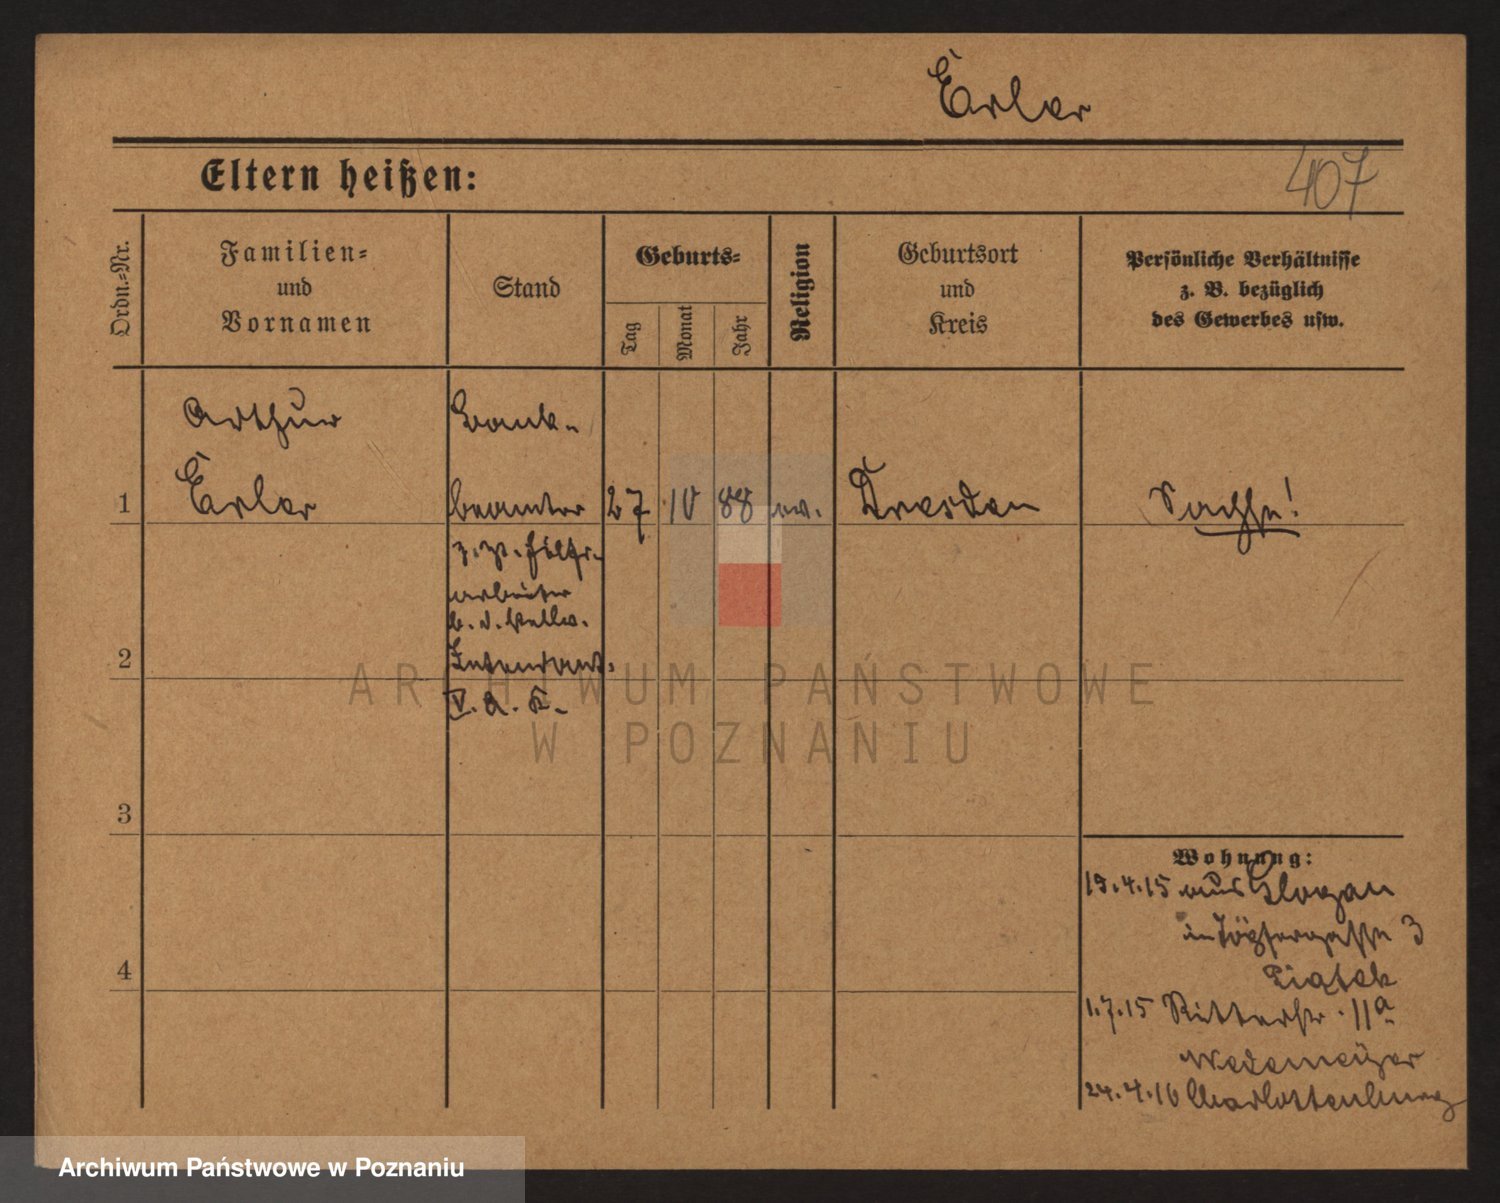 Erler
Eltern heißen:
407
Ordn.-Nr.
Familien-
und
Vornamen
Stand
Geburts-
Tag
Monat
Jahr
Religion
Geburtsort
und
Kreis
Persönliche Verhältnisse
z. B. bezüglich
des Gewerbes usw.
Arthur
Bank-
1 Erler beamter 27 10 88 ev. Dresden Sachse!
z. Zt. Hilfs-
arbeiter
b. d. stellv.
2 Intendant.
V. A. K.
ARCHIWUM PAŃSTWOWE
W POZNANIU
3
Wohnung:
19.4.15 aus Glogau
in Töpfergasse 3
4 Piątek
1.7.15 Ritterstr. 11a
Wedemeyer
24.4.16 Charlottenburg
Archiwum Państwowe w Poznaniu